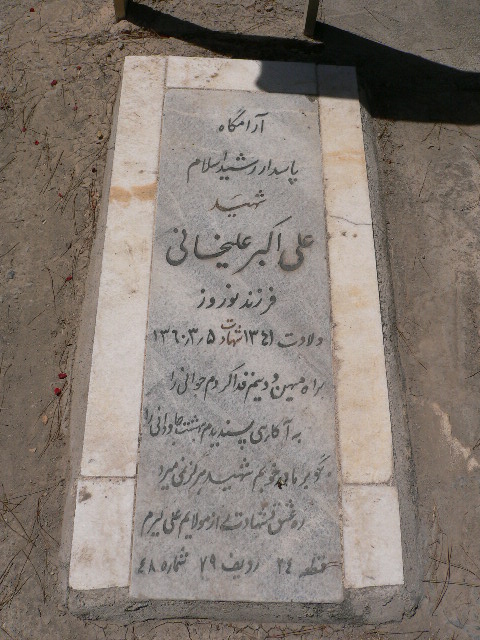 آرامگاه
پاسدار رشید اسلام
شهید
علی اکبر علیخانی
فرزند نوروز
ولادت ۱۳۴۱ شهادت ۱۳۶۰٫۳٫۵
براه میهن و دینم فدا کردم جوانی را
به آگاهی پسندیدم بهشت جاودانی را
بگو بر مادر خوبم شهید هرگز نمی‌میرد
ره عشق و شهادت را از مولایم علی گیرم
قطعه ۲۴ ردیف ۷۹ شماره ۴۸